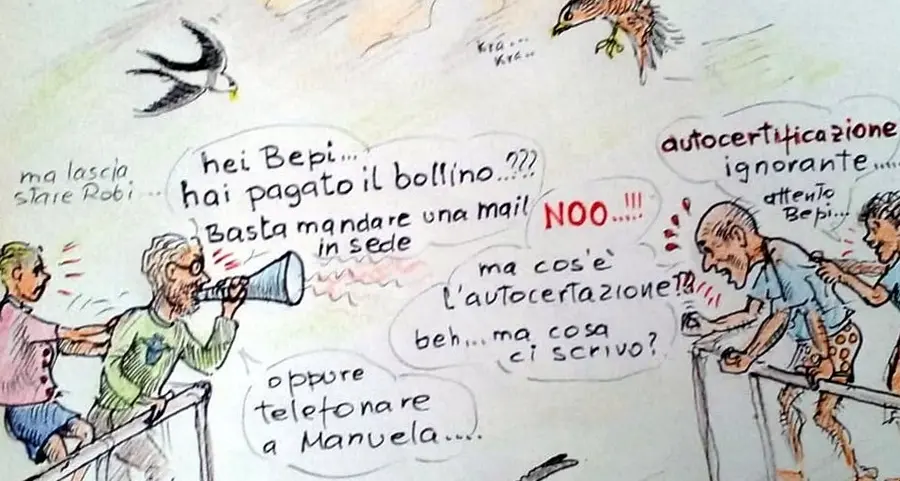 kra...
kra..
ma lascia
stare Robi...
hei Bepi...
hai pagato il bollino..???
Basta mandare una mail
in sede
oppure
telefonare
a Manuela....
NOO...!!!
ma cos'è
l'autocertazione?!?
beh... ma cosa
ci scrivo?
autocertificazione
ignorante....
attento
Bepi...